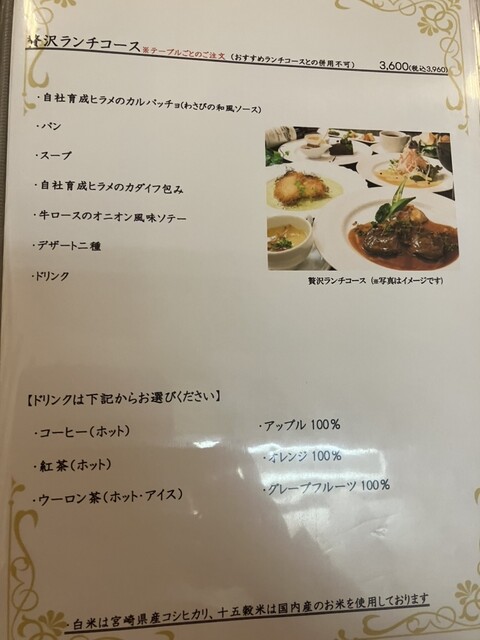 贅沢ランチコース※テーブルごとのご注文（おすすめランチコースとの併用不可） 3,600(税込3,960)
・自社育成ヒラメのカルパッチョ(わさびの和風ソース)
・パン
・スープ
・自社育成ヒラメのカダイフ包み
・牛ロースのオニオン風味ソテー
・デザート二種
・ドリンク
贅沢ランチコース（※写真はイメージです）
【ドリンクは下記からお選びください】
・コーヒー（ホット） ・アップル 100%
・紅茶（ホット） ・オレンジ 100%
・ウーロン茶（ホット・アイス） ・グレープフルーツ 100%
・白米は宮崎県産コシヒカリ、十五穀米は国内産のお米を使用しております